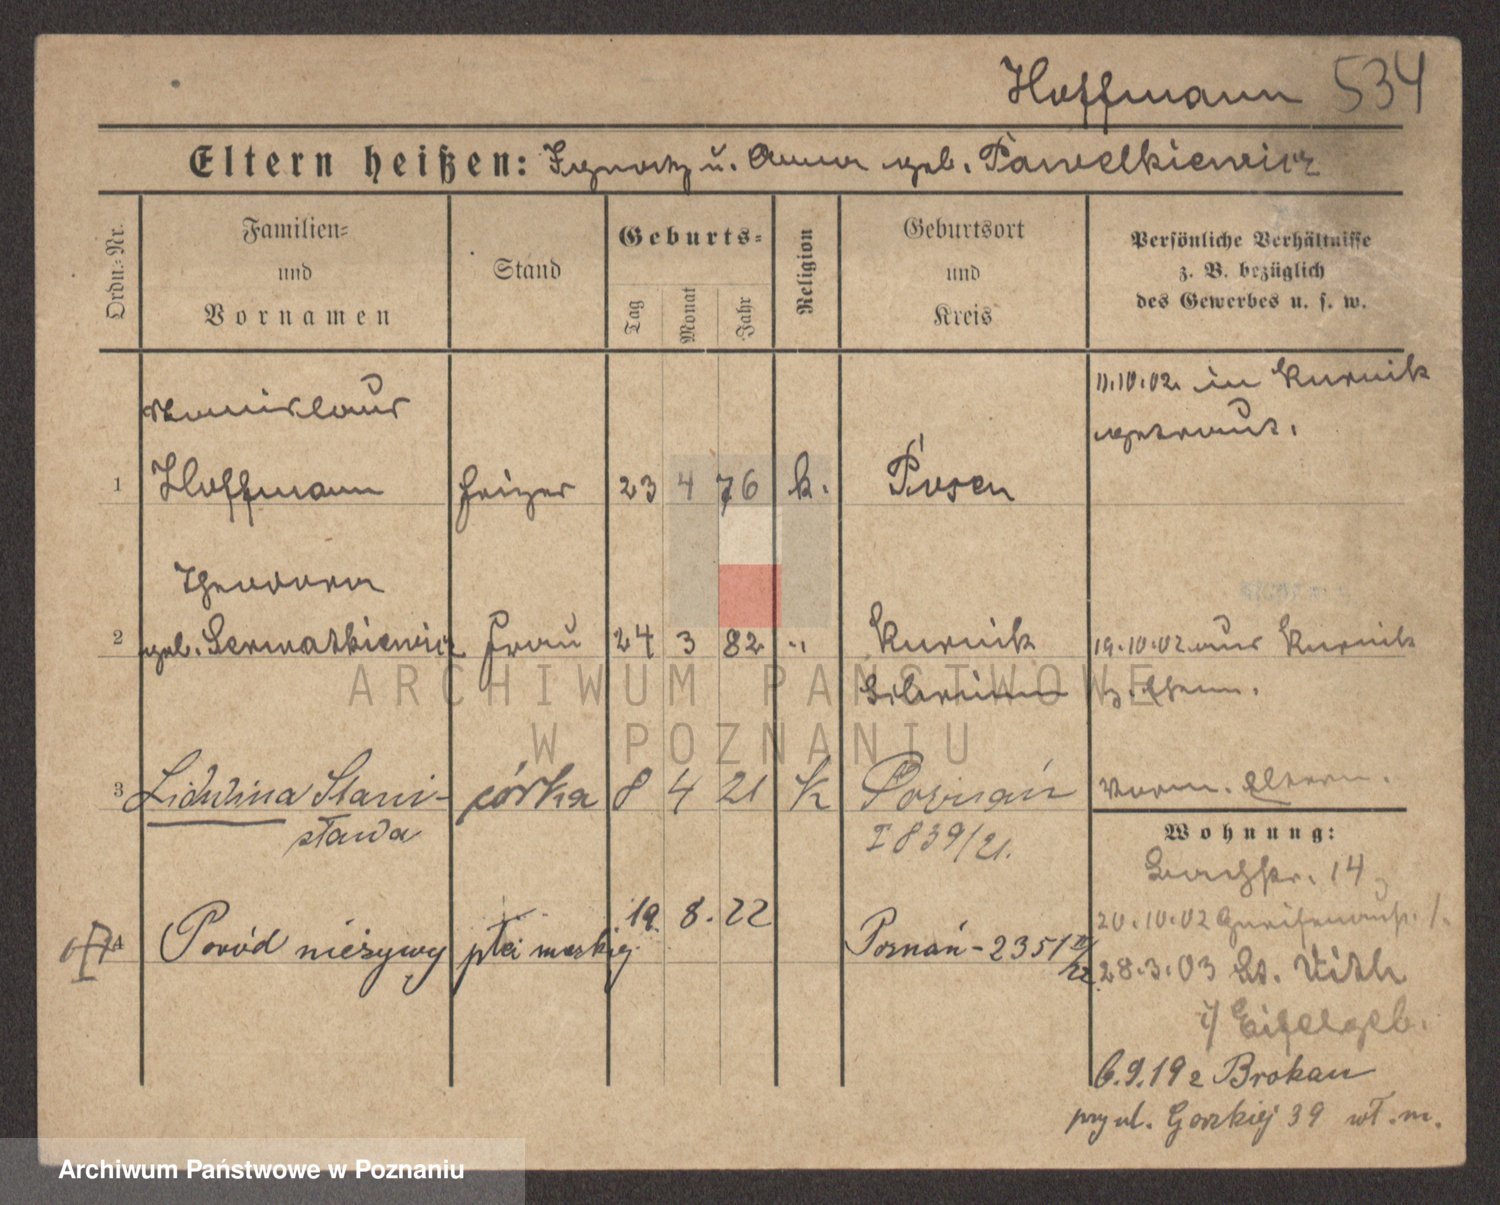 Hoffmann 534
Eltern heißen: Ignatz u. Anna geb. Pawelkiewicz
Ordn.-Nr.
Familien-
und
Vornamen
Stand
Geburts-
Tag
Monat
Jahr
Religion
Geburtsort
und
Kreis
Persönliche Verhältnisse
z. B. bezüglich
des Gewerbes u. s. w.
Stanislaus
11.10.02. in Kurnik
getraut.
1 Hoffmann Heizer 23 4 76 k. Posen
Theodora
2 geb. Serwatkiewicz Frau 24 3 82 " Kurnik 19.10.02 aus Kurnik
Schrimm
3 Lidwina Stani- córka 8 4 21 k Poznań Vorn. Eltern.
sława I 839/21.
Wohnung:
Bachstr. 14
4 Poród nieżywy płci męskiej 19. 8. 22 Poznań - 2351 II/22
20.10.02
28.3.03 St. Vith
i/ Eifelgeb.
6.9.19 z Brokau
przy ul. Gorzkiej 39 wł. m.
ARCHIWUM PAŃSTWOWE
W POZNANIU
Archiwum Państwowe w Poznaniu